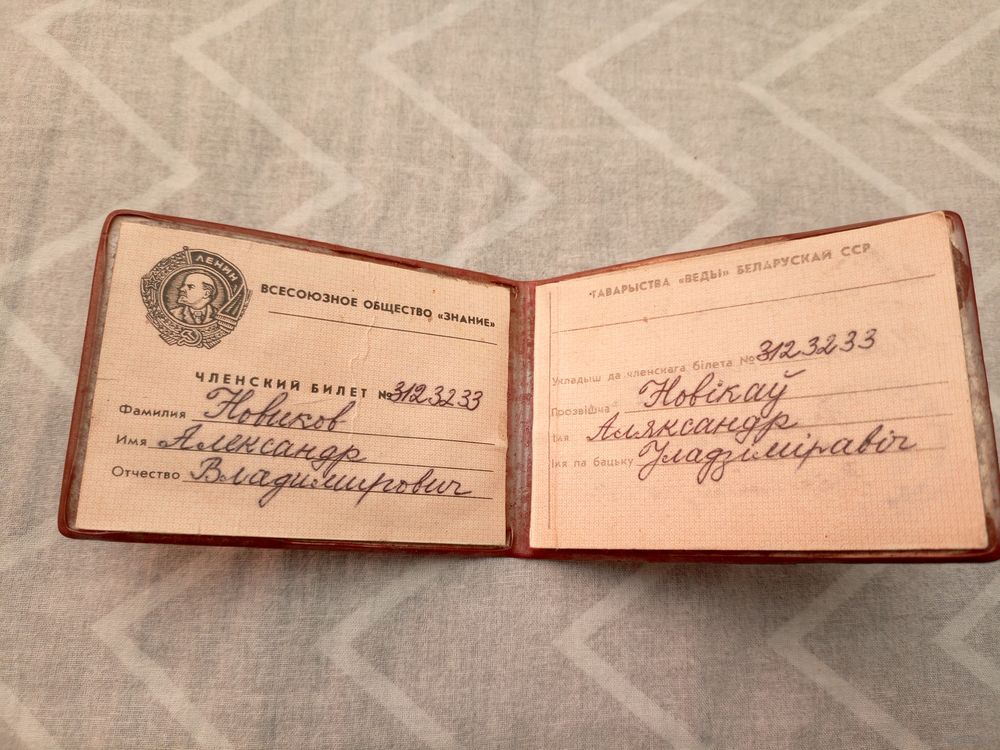 ЛЕНИН
ВСЕСОЮЗНОЕ ОБЩЕСТВО «ЗНАНИЕ»
ЧЛЕНСКИЙ БИЛЕТ № 3123233
Фамилия Новиков
Имя Александр
Отчество Владимирович
ТАВАРЫСТВА «ВЕДЫ» БЕЛАРУСКАЙ ССР
Укладыш да членскага білета № 3123233
Прозвішча Новікаў
Імя Аляксандр
Імя па бацьку Уладзіміравіч